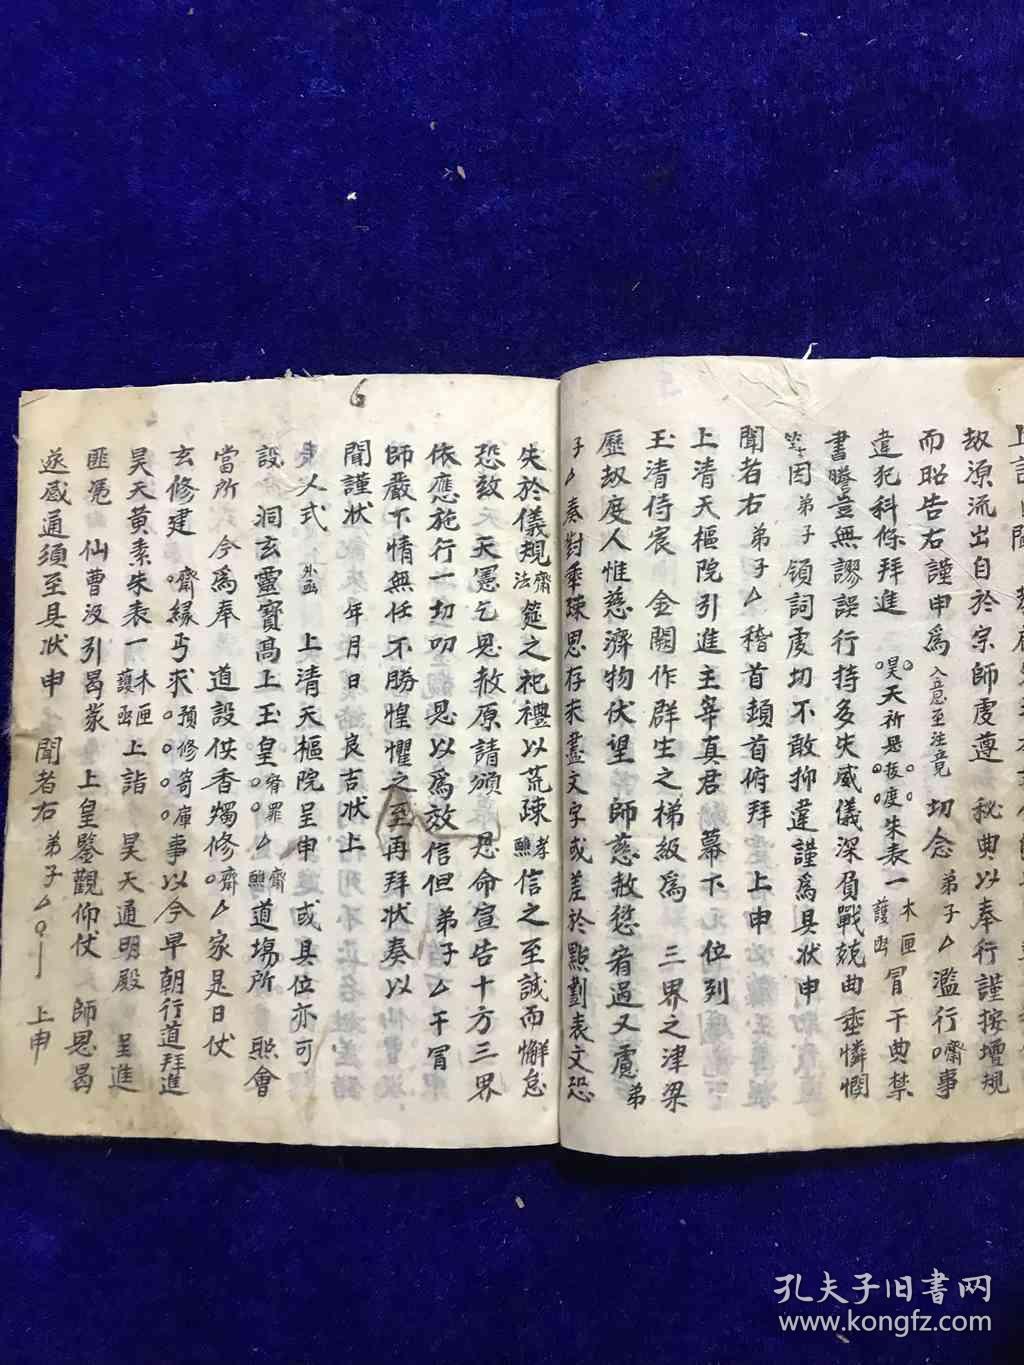 劫源流出自於宗師虔遵 秘典以奉行謹按壇規
而昭告右謹申為 入意至注意完 切念 弟子厶濫行齋事
違犯科條拜進 昊天祈恩拔度朱表一 木匣護函 冒干典禁
書謄豈無謬誤行持多失威儀深負戰兢曲垂憐憫
因弟子領詞虔切不敢抑違謹為具狀申
聞者右 弟子厶稽首頓首俯拜上申
上清天樞院引進主宰真君 幕下 位列
玉清侍宸 金闕作群生之梯級為 三界之津梁
歷劫度人惟慈濟物伏望 師慈赦愆宥過又慮 弟
子厶奏對乖疎思存未盡文字或差於點劃表文恐
6
失於儀規 齋法 筵之祀禮以荒疎 孝㷩 信之至誠而懈怠
恐致 天憲乞恩赦原請頒 恩命宣告十方三界
依應施行一切叨 恩以為放信但 弟子厶干冒
師嚴下情無任不勝惶懼之至再拜狀奏以
聞謹狀 年月日良吉狀上
入式 外函 上清天樞院呈申或具位亦可
設 洞玄靈寶高上玉皇 宥罪厶 齋㷩 道場所 㷩會
當所 今為奉 道設供香燭修齋厶家是日伏
玄修建 齋緣丐求 預修寄庫 事以今早朝行道拜進
昊天黃素朱表一 木匣護函 上詣 昊天通明殿 呈進
匪憑 仙曹汲引曷蒙 上皇鑒觀仰仗 師恩曷
遂感通須至具狀申 聞者右 弟子厶 上申
孔夫子旧書网
www.kongfz.com